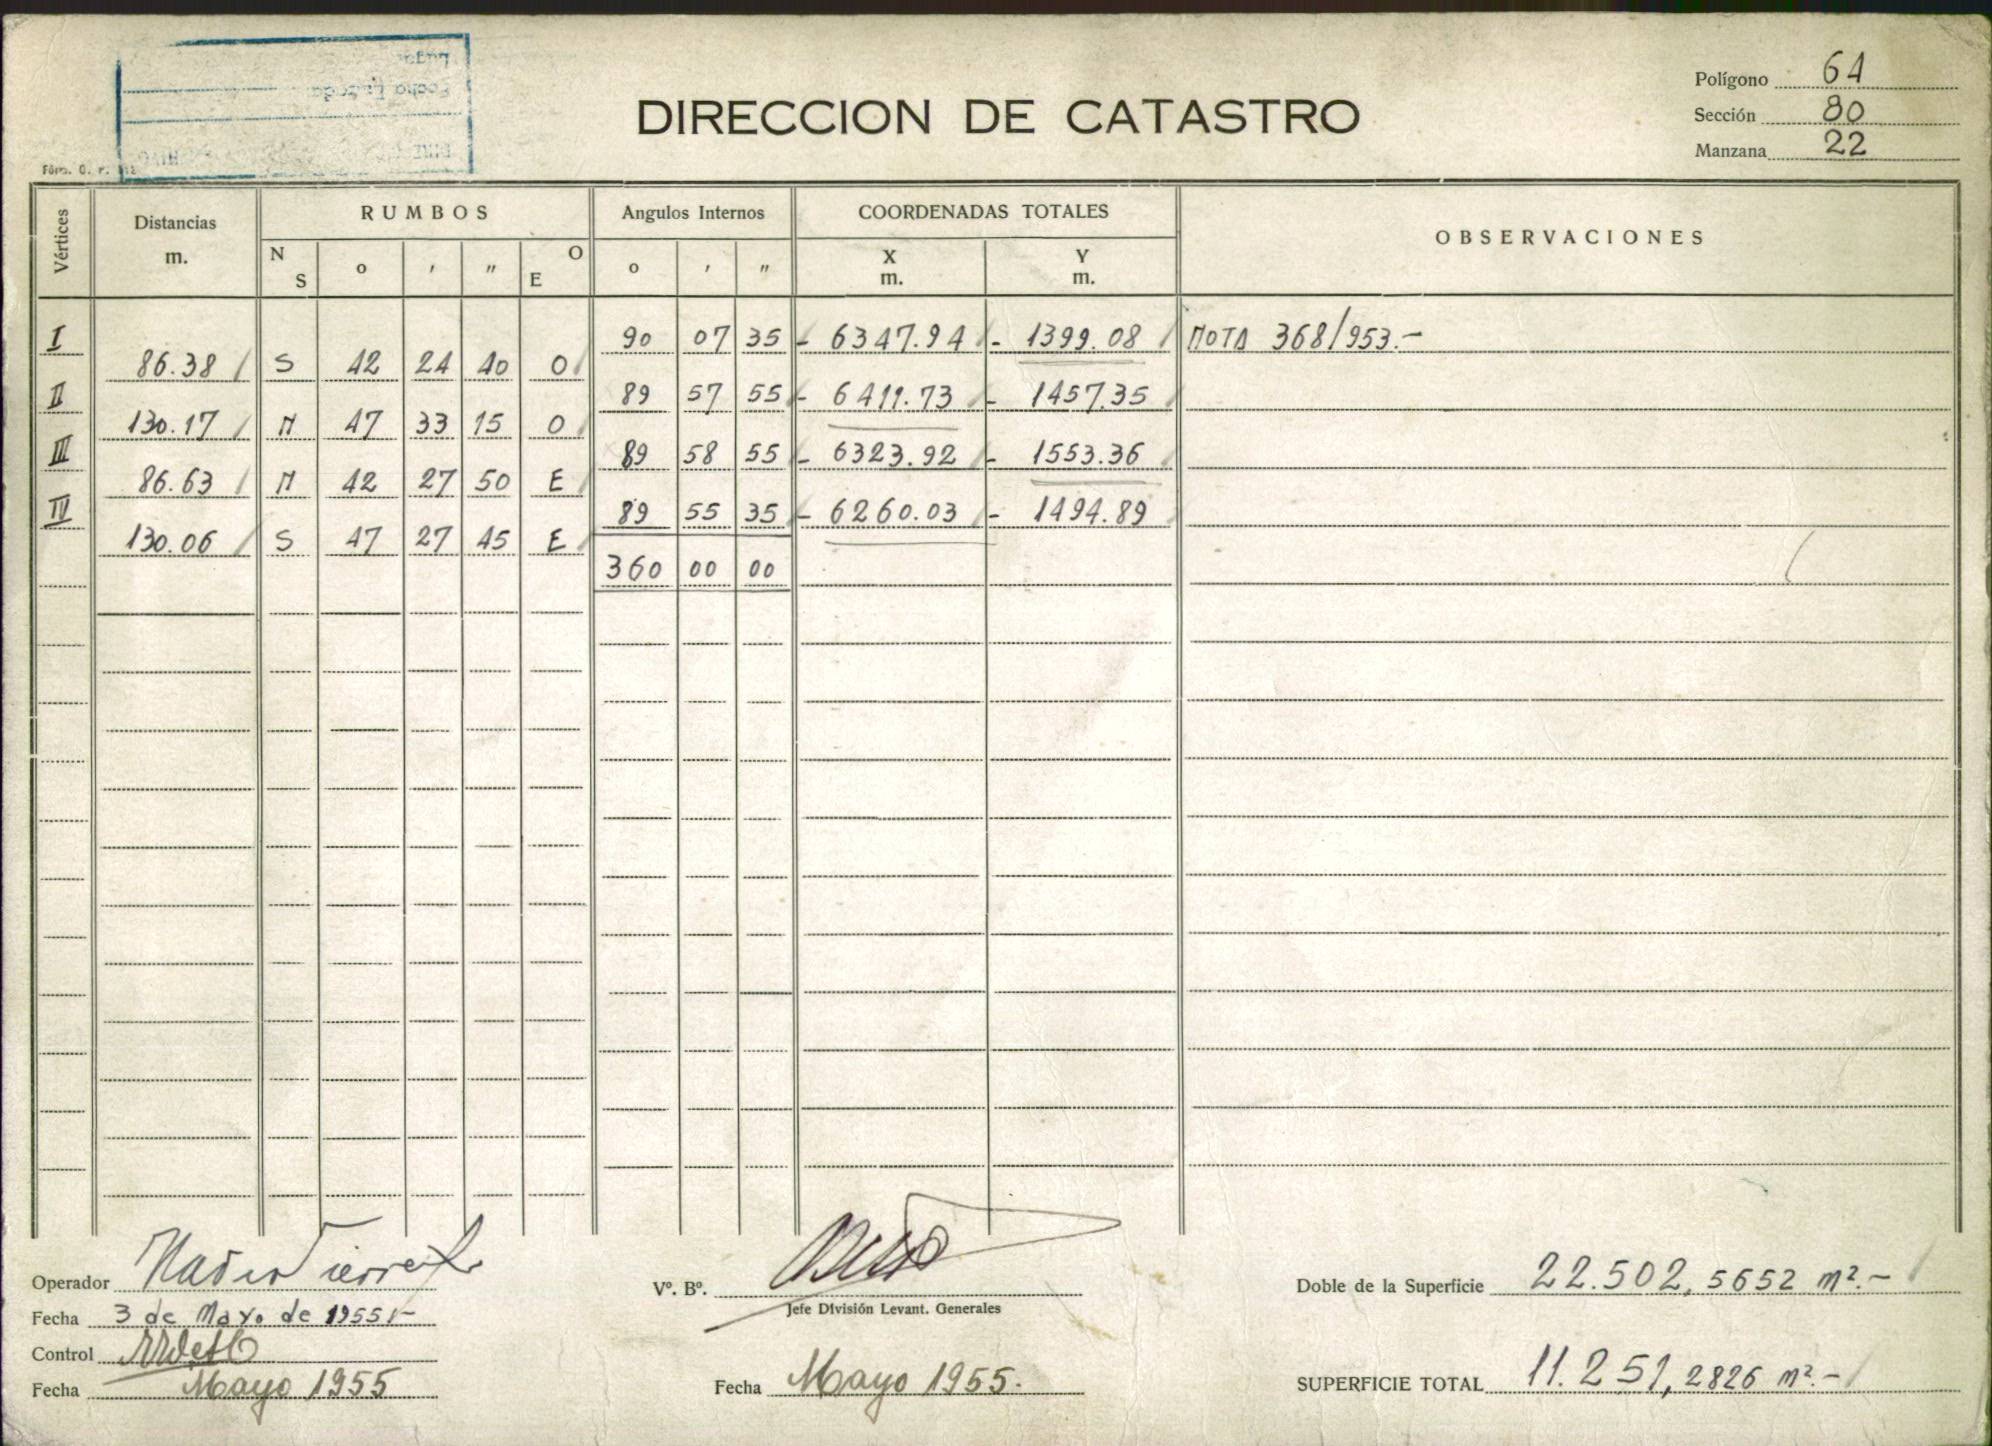 DIRECCION DE CATASTRO
Polígono 64
Sección 80
Manzana 22
Vértices Distancias m. RUMBOS Angulos Internos COORDENADAS TOTALES OBSERVACIONES
N S o ' " O E o ' " X m. Y m.
I 90 07 35 - 6347.94 - 1399.08 NOTA 368/953.-
86.38 S 42 24 40 O
II 89 57 55 - 6411.73 - 1457.35
130.17 N 47 33 15 O
III 89 58 55 - 6323.92 - 1553.36
86.63 N 42 27 50 E
IV 89 55 35 - 6260.03 - 1494.89
130.06 S 47 27 45 E
360 00 00
Operador
Fecha 3 de Mayo de 1955.-
Control
Fecha Mayo 1955
Vº. Bº.
Jefe División Levant. Generales
Fecha Mayo 1955.
Doble de la Superficie 22.502,5652 m².-
SUPERFICIE TOTAL 11.251,2826 m².-